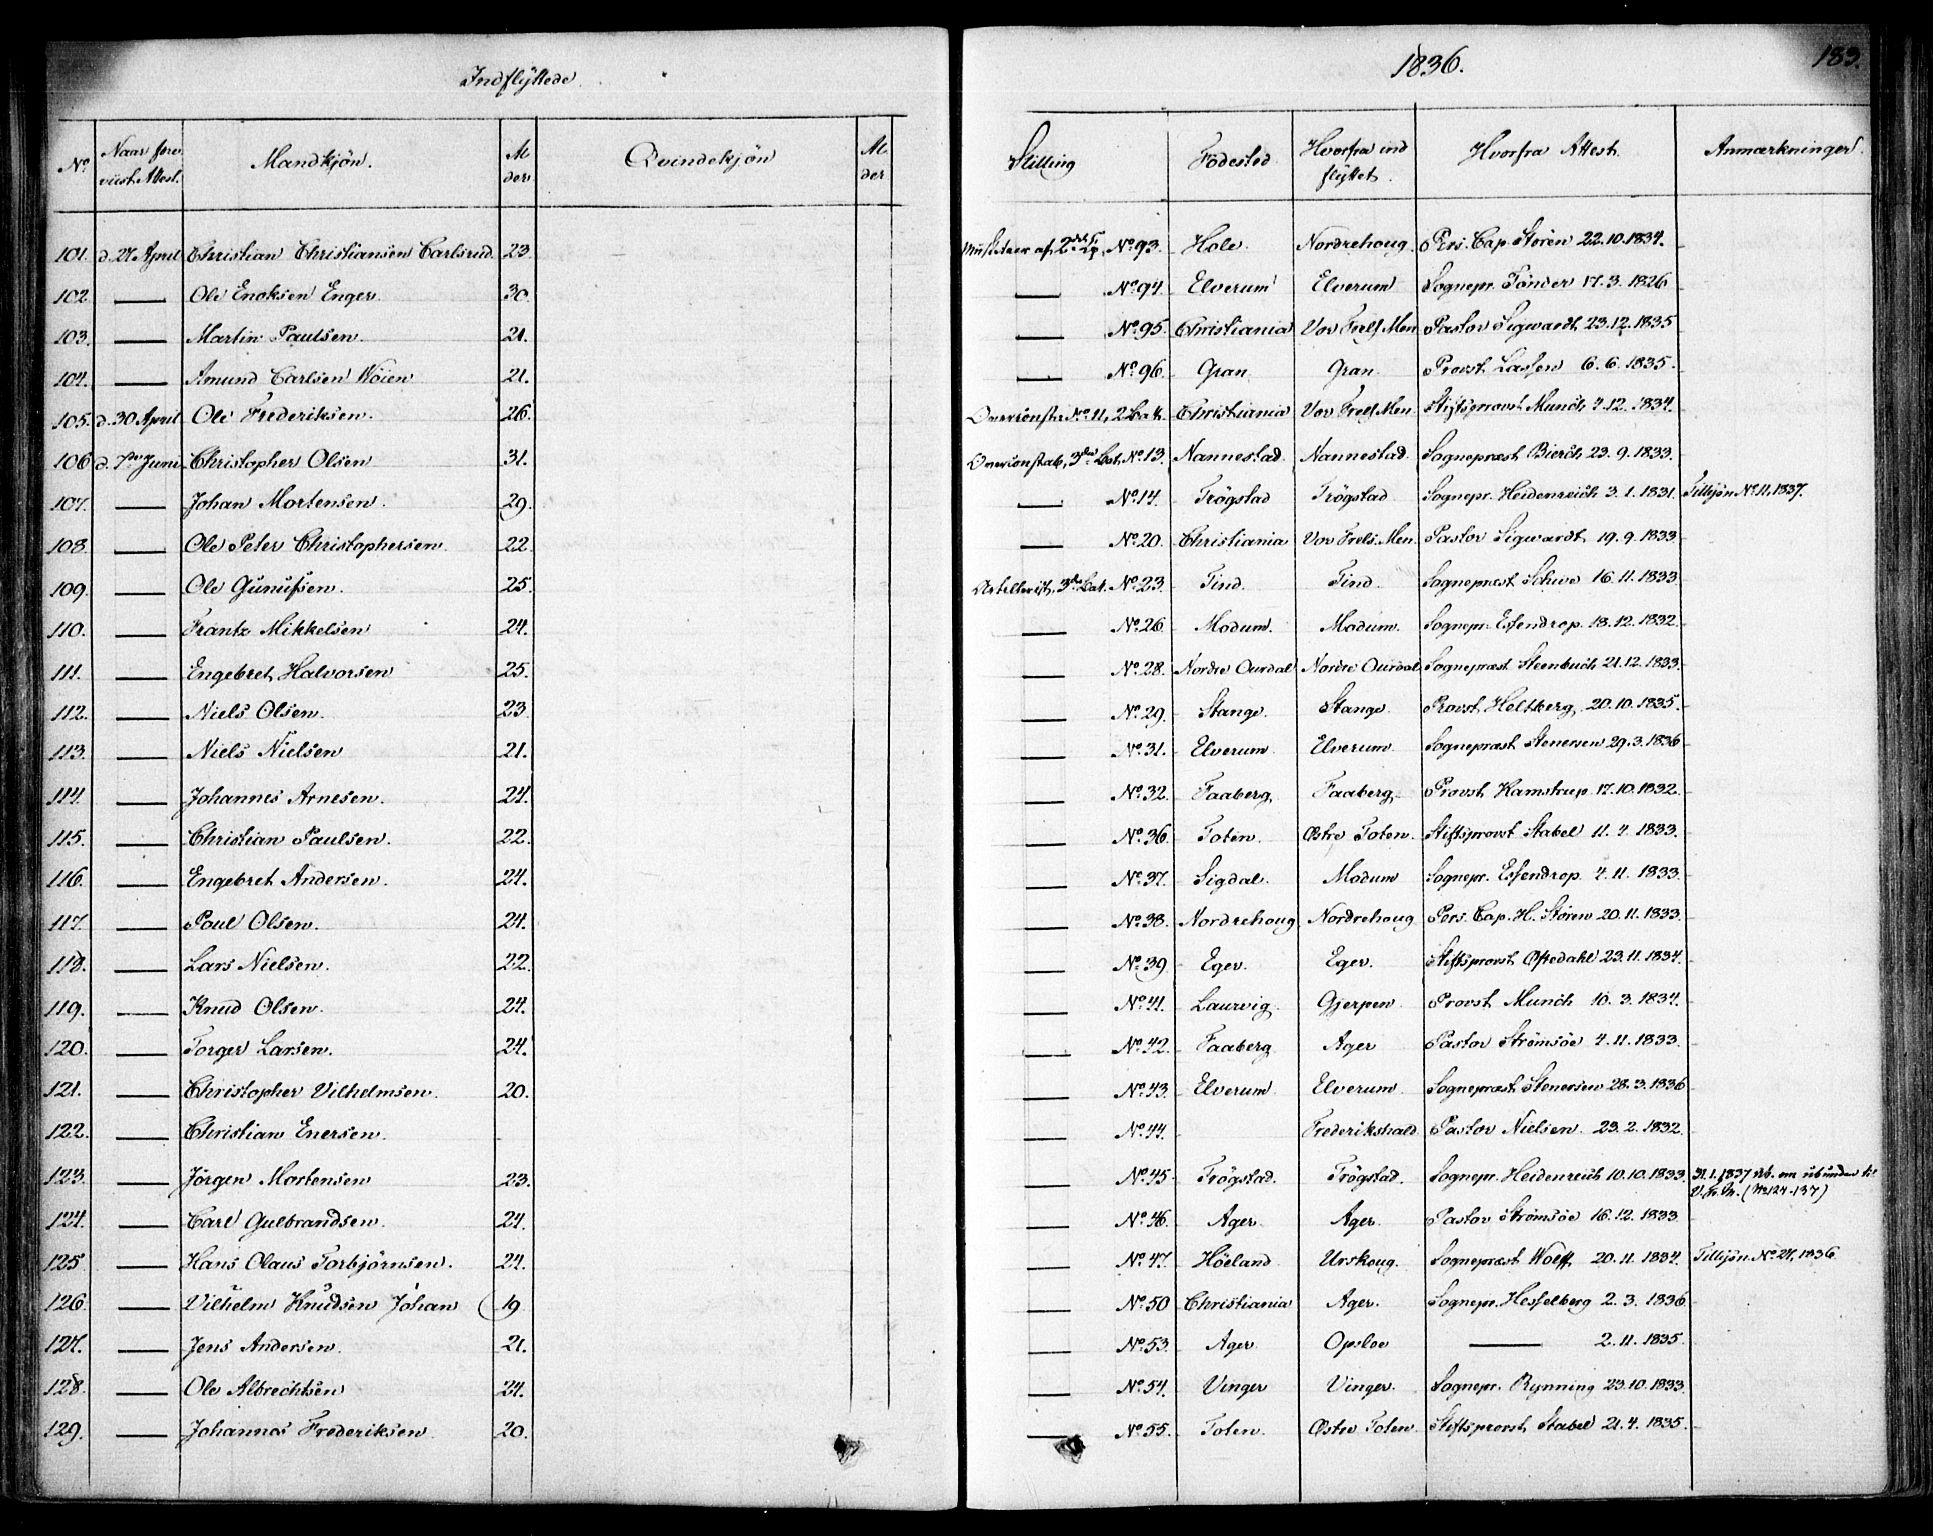 Indflyttede
1836.
183.
No Naar fore Mandkjön. Al Qvindekjön Al Stilling Födested Hvorfra ind Hvorfra Attest. Anmærkninger.
viist Attest. der der flyttet.
101. d. 27 April Christian Christiansen Carlsrud 23. No 93. Hole Nordrehoug. Pers. Cap. Stören 22.10.1834.
102. — Ole Enoksen Enger 30. — No 94. Elverum Elverum Sognepr. Tönder 17.3.1826
103. — Martin Paulsen. 21. — No 95. Christiania Vor Frels Men. Pastor Sigwardt 23.12.1835
104. — Amund Carlsen Wöien 21. — No 96. Gran Gran Provst Lassen 6.6.1835.
105. d. 30 April Ole Frederiksen. 26. No 11, 2 Bat. Christiania Vor Frels Men. Stiftsprovst Munch 4.12.1834.
106 d. 7de Juni Christopher Olsen 31. Overconstab. 3die Bat. No 13. Nannestad Nannestad. Sognepræst Bierch 23.9.1833.
107. — Johan Mortensen. 29. — No 14. Trögstad Trögstad Sognepr. Heidenreich 3.1.1831. Tillysn No 11, 1837.
108. — Ole Peter Christophersen 22. — No 20. Christiania Vor Frels. Men. Pastor Sigwardt 19.9.1833.
109. — Ole Gunufsen. 25. Artillerist, 3die Bat. No 23. Tind. Tind. Sognepræst Schive 16.11.1833
110. — Frantz Mikkelsen 24. — No 26 Modum. Modum. Sognepr. Essendrop. 18.12.1832.
111. — Engebret Halvorsen 25. — No 28. Nordre Ourdal Nordre Ourdal Sognepræst Steenbuch 21.12.1833.
112. — Niels Olsen. 23 — No 29. Stange. Stange. Provst Holtberg. 20.10.1835.
113. — Niels Nielsen 21. — No 31. Elverum Elverum Sognepræst Stenersen 29.3.1836
114. — Johannes Arnesen. 24. — No 32. Faaberg. Faaberg. Provst Kamstrup 17.10.1832.
115. — Christian Paulsen. 22. — No 36. Toten. Østre Toten. Stiftsprovst Stabel 11.4.1833.
116. — Engebret Andersen. 24. — No 37. Sigdal. Modum Sognepr. Essendrop 4.11.1833.
117. — Paul Olsen. 24. — No 38. Nordrehoug Nordrehoug Pers. Cap. H. Stören 20.11.1833.
118. — Lars Nielsen. 22. — No 39 Eger. Eger. Stiftsprovst Oftedahl 23.11.1834.
119. — Knud Olsen. 24. — No 41. Laurvig Gjerpen Provst Munch 10.3.1834.
120. — Torger Larsen. 24. — No 42. Faaberg Ager Pastor Strömsöe 4.11.1833.
121. — Christopher Vilhelmsen. 20. — No 43. Elverum Elverum Sognepræst Stenersen 28.3.1836
122. — Christian Enersen. — No 44. Frederikshald Pastor Nielsen 23.2.1832.
123. — Jörgen Mortensen 23. — No 45 Trögstad. Trögstad. Sognepr. Heidenreich 10.10.1833. 31.1.1837 Att. om ubunden til
V. Fr. M. (No 124-137)
124. — Carl Gulbrandsen. 24. — No 46. Ager. Ager. Pastor Strömsöe 16.12.1833.
125 — Hans Olaus Torbjörnsen. 24. — No 47. Höeland Urskoug. Sognepræst Wolff 20.11.1834. Tillysn. No 24, 1836
126. — Vilhelm Knudsen Johan 19 — No 50 Christiania Ager. Sognepr. Hesselberg 2.3.1836
127. — Jens Andersen. 21. — No 53. Ager Opsloe — 2.11.1835.
128. — Ole Albrechtsen 24. — No 54. Vinger Vinger. Sognepr. Rynning 23.10.1833.
129. — Johannes Frederiksen 20. — No 55. Toten. Østre Toten. Stiftsprovst Stabel 21.4.1835.